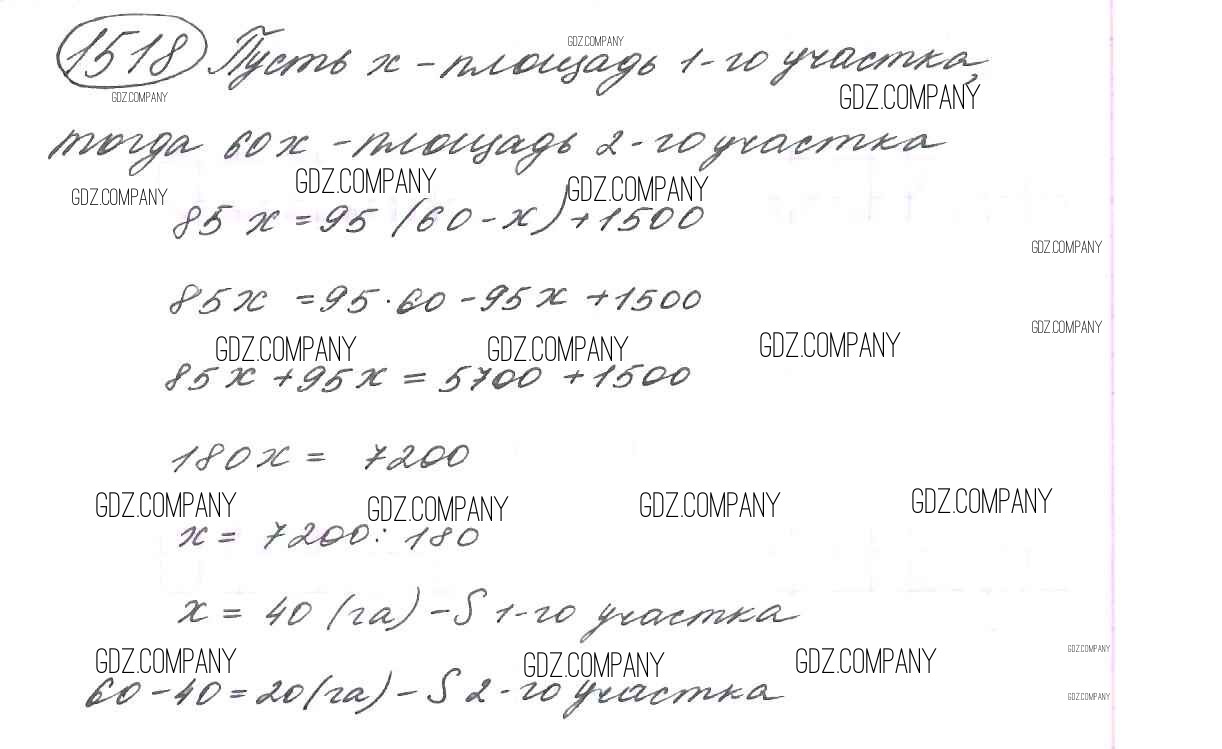 1518 Пусть x - площадь 1-го участка,
GDZ.COMPANY
GDZ.COMPANY
GDZ.COMPANY
тогда 60x - площадь 2-го участка
GDZ.COMPANY
GDZ.COMPANY
GDZ.COMPANY
85x = 95(60-x)+1500
GDZ.COMPANY
85x = 95·60-95x+1500
GDZ.COMPANY
GDZ.COMPANY
GDZ.COMPANY
GDZ.COMPANY
85x+95x = 5700+1500
180x = 7200
GDZ.COMPANY
GDZ.COMPANY
GDZ.COMPANY
GDZ.COMPANY
x = 7200:180
x = 40(га) - S 1-го участка
GDZ.COMPANY
GDZ.COMPANY
GDZ.COMPANY
GDZ.COMPANY
60-40=20(га) - S 2-го участка
GDZ.COMPANY